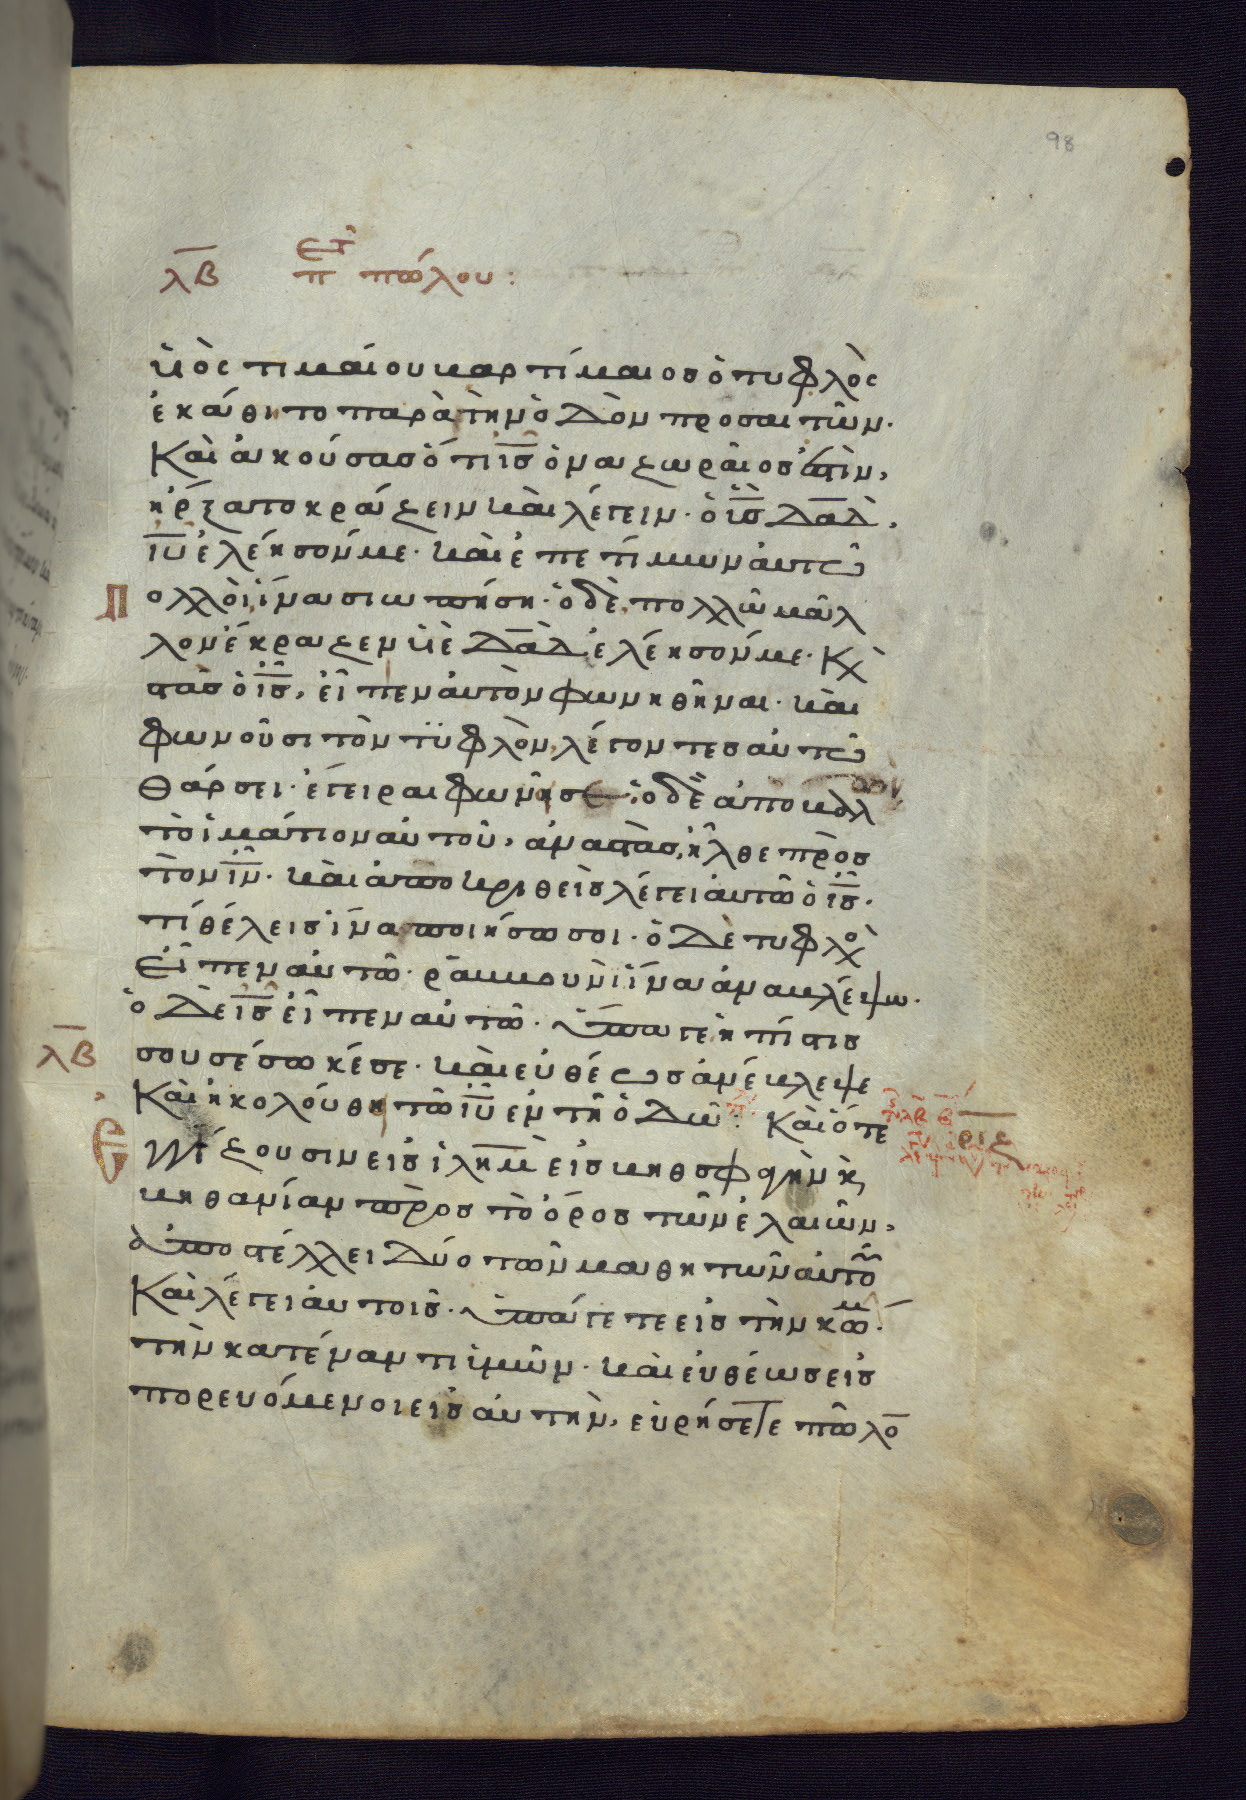 98
λβ ετ π πώλου:
ὑιὸς τιμαίου βαρτίμαιος ὁ τυφλὸς
ἐκάθητο παρὰ τὴν ὁδὸν προσαιτῶν.
Καὶ ἀκούσας ὅτι ις ὁ ναζωραῖος ἐστὶν,
ἤρξατο κράζειν καὶ λέγειν. ὁ υς δαδ,
ιυ ἐλέησόν με. καὶ ἐπετίμων ἀυτῶ
πολλοὶ ἵνα σιωπήση. ὁ δὲ πολλῶ μᾶλ
λον ἔκραζεν υἱὲ δαδ ἐλέησόν με. Κὶ
στὰς ὁ ις, εἶπεν ἀυτὸν φωνηθῆναι. καὶ
φωνοῦσι τὸν τϋφλὸν, λέγοντες αὐτῶ
Θάρσει. ἔγειραι φωνεῖ σε. ὁ δὲ ἀποβαλ
τὸ ἱμάτιον αὐτοῦ, ἀναστὰς, ἦλθε πρὸς
τὸν ιν. καὶ ἀποκριθεὶς λέγει ἀυτῶ ὁ ις.
τί θέλεις ἵνα ποιήσω σοι. ὁ δὲ τυφλὸ
Εἶπεν αὐτῶ. ραββουνὶ ἵνα ἀναβλέψω.
ὁ δὲ ις εἶπεν αὐτῶ. ὕπαγε ἡ πίστις
λβ σου σέσωκέ σε. καὶ εὐθέως ἀνέβλεψε
Καὶ ἠκολούθη τῶ ιυ ἐν τῆ ὁδῶ: Καὶ ὅτε
Ἐγγίζουσιν εἰς ἰλημ εἰς βηθσφαγὴν κ
βηθανίαν πρὸς τὸ ὄρος τῶν ἐλαιῶν,
ἀποστέλλει δύο τῶν μαθητῶν ἀυτοῦ
Καὶ λέγει ἀυτοῖς. ὑπάγετε εἰς τὴν κώμ.
τὴν κατέναντι ἡμῶν. καὶ εὐθέως εἰσ
πορευόμενοι εἰς αὐτὴν, εὑρήσετε πῶλο
ριζ